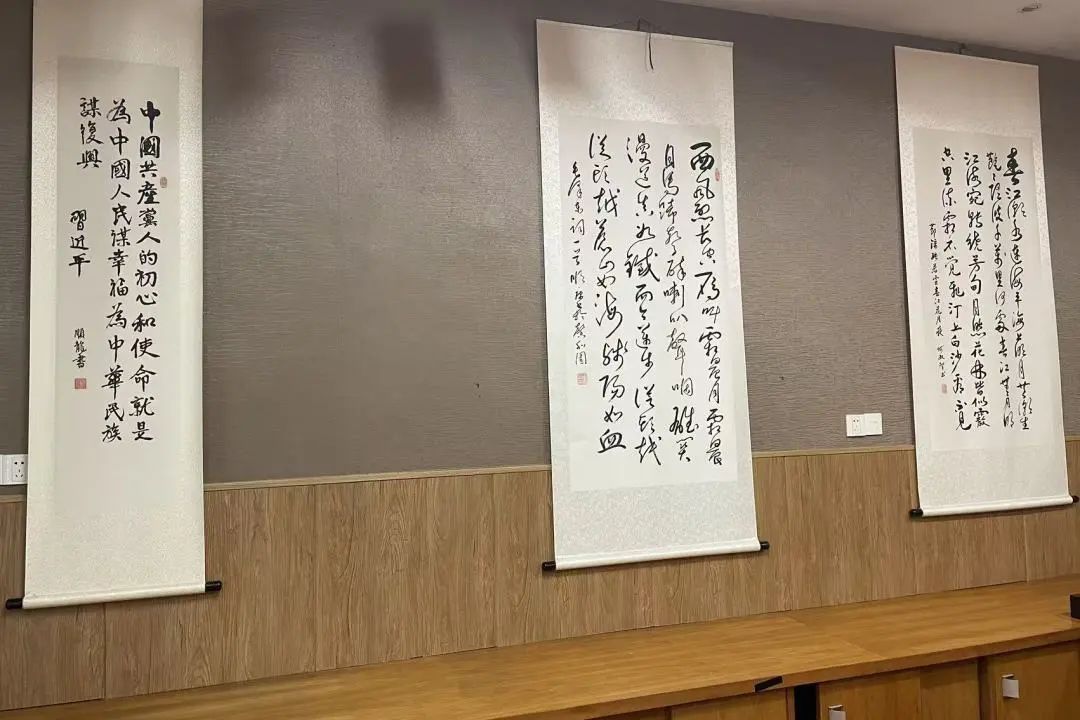 中國共產黨人的初心和使命就是
為中國人民謀幸福為中華民族
謀復興
習近平
順龍書
西風烈长空雁叫霜晨月霜晨
月馬蹄声碎喇叭聲咽雄关
漫道真如鐵而今邁步從頭越
從頭越蒼山如海殘陽如血
毛澤東詞一首
春江潮水連海平海上明月共潮生
灩灩隨波千萬里何處春江無月明
江流宛轉繞芳甸月照花林皆似霰
空里流霜不覺飛汀上白沙看不見
節錄張若虛春江花月夜